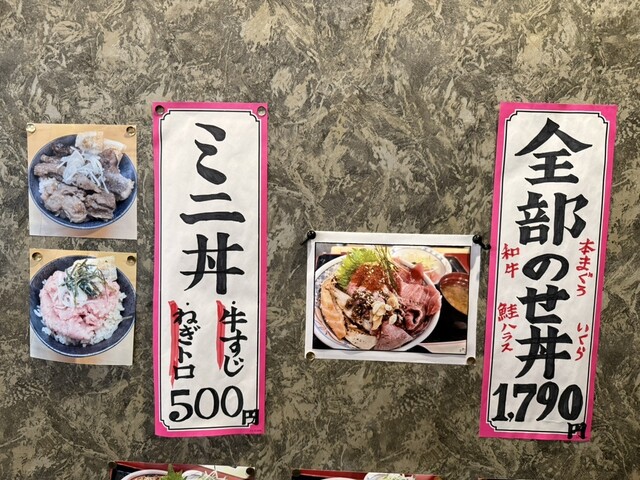 全部のせ丼
本まぐろ
いくら
和牛
鮭ハラス
1,790円
ミニ丼
・牛すじ
・ねぎトロ
500円